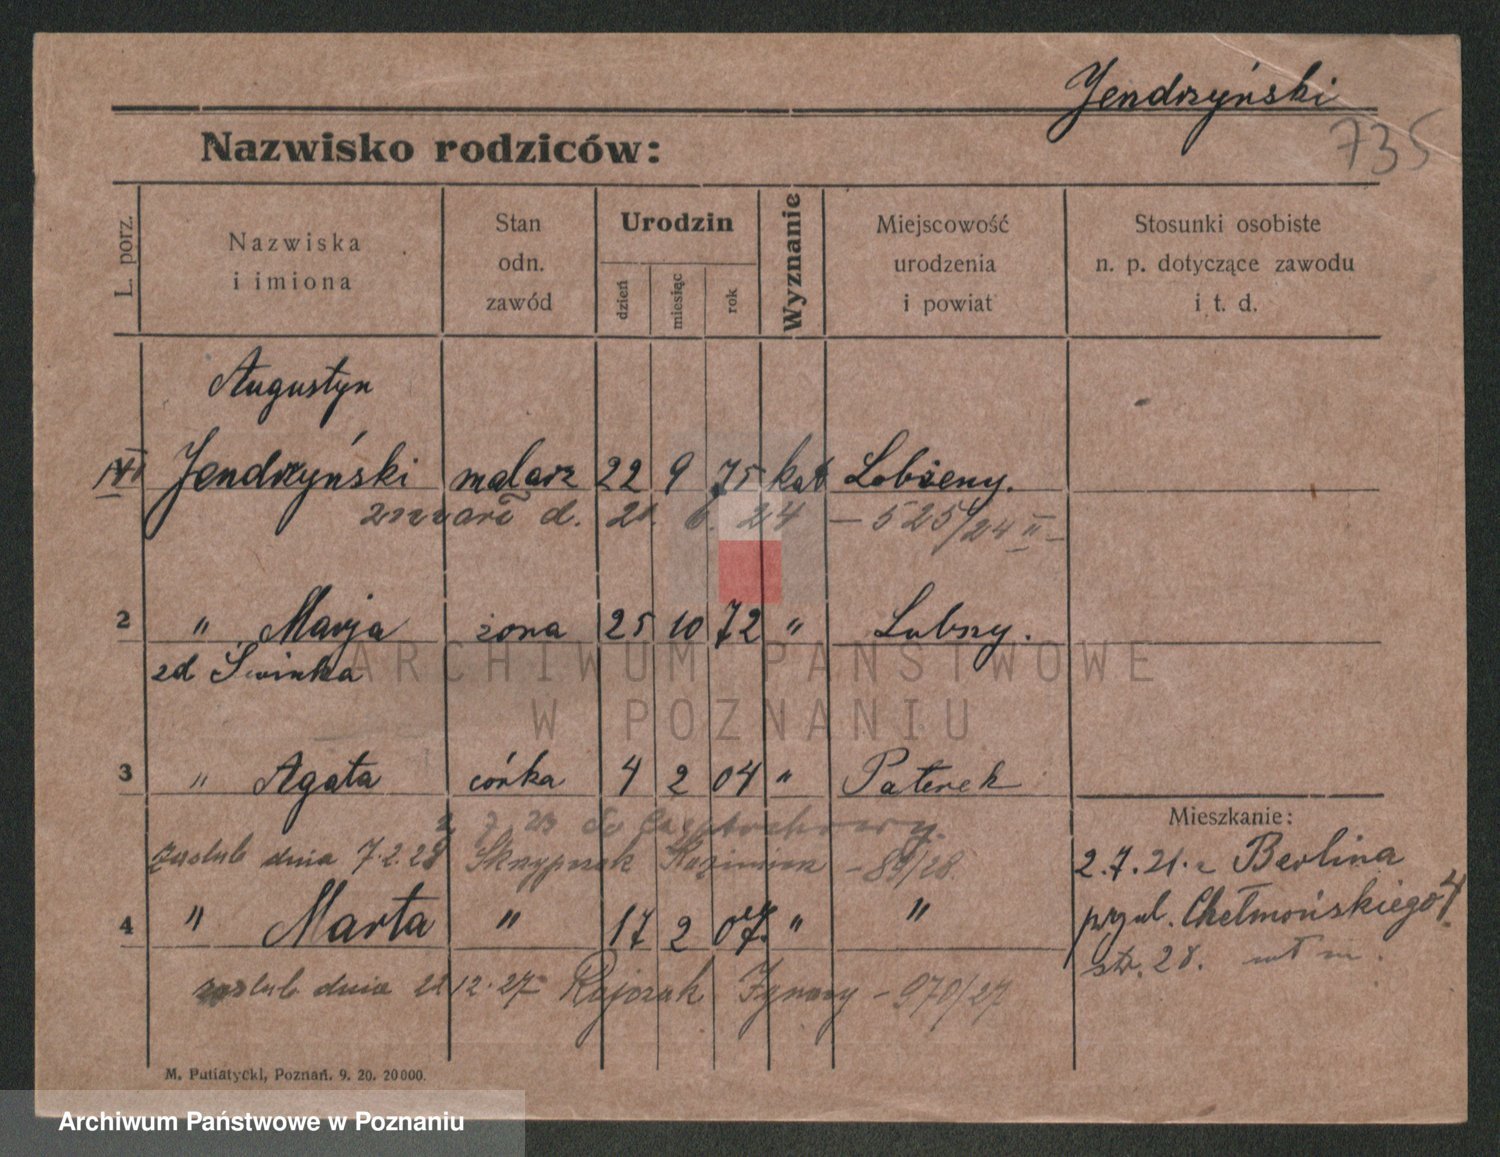 Jendrzyński
735
Nazwisko rodziców:
L. porz.
Nazwiska
i imiona
Stan
odn.
zawód
Urodzin
dzień
miesiąc
rok
Wyznanie
Miejscowość
urodzenia
i powiat
Stosunki osobiste
n. p. dotyczące zawodu
i t. d.
Augustyn
Jendrzyński malarz 22 9 75 kat Lobżeny.
zmarł d. 21. 6. 24 – 525/24 II –
2 " Marja żona 25 10 72 " Lubszy.
zd Świnka
3 " Agata córka 4 2 04 " Paterek
7 23 do Częstochowy.
zaślub dnia 7.2.28 Skrzypczak Kazimierz – 89/28.
4 " Marta " 17 2 07. " "
zaślub dnia 22 12. 27 Ignacy – 970/27
Mieszkanie:
2.7.21. z Berlina
przy ul. Chełmońskiego 4.
str. 28.
M. Putiatycki, Poznań. 9. 20. 20000.
ARCHIWUM PAŃSTWOWE
W POZNANIU
Archiwum Państwowe w Poznaniu